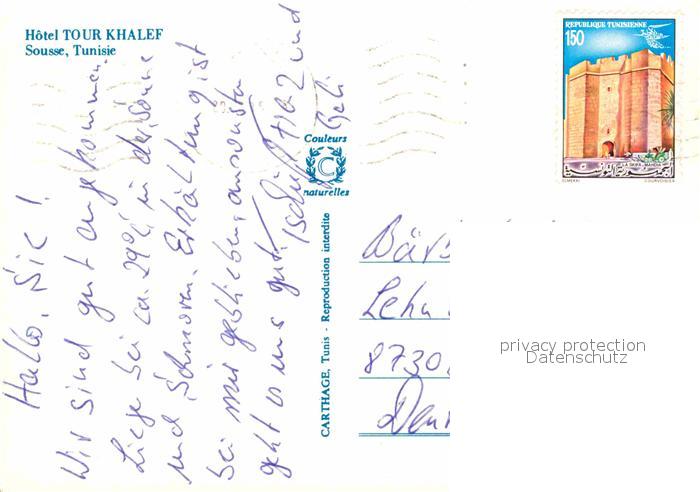 Hôtel TOUR KHALEF
Sousse, Tunisie
Hallo, Sie!
Wir sind gut angekommen.
Liege bei ca. 29°C in der Sonne
und schmoren. Erkältung ist
bei mir geblieben, ansonsten
geht es uns gut.
Tschüß und
Couleurs
C
naturelles
CARTHAGE, Tunis - Reproduction interdite
REPUBLIQUE TUNISIENNE
150
LA SKIFA - MAHDIA
الجمهورية التونسية
Bärb
Lehn
8730
privacy protection
Datenschutz